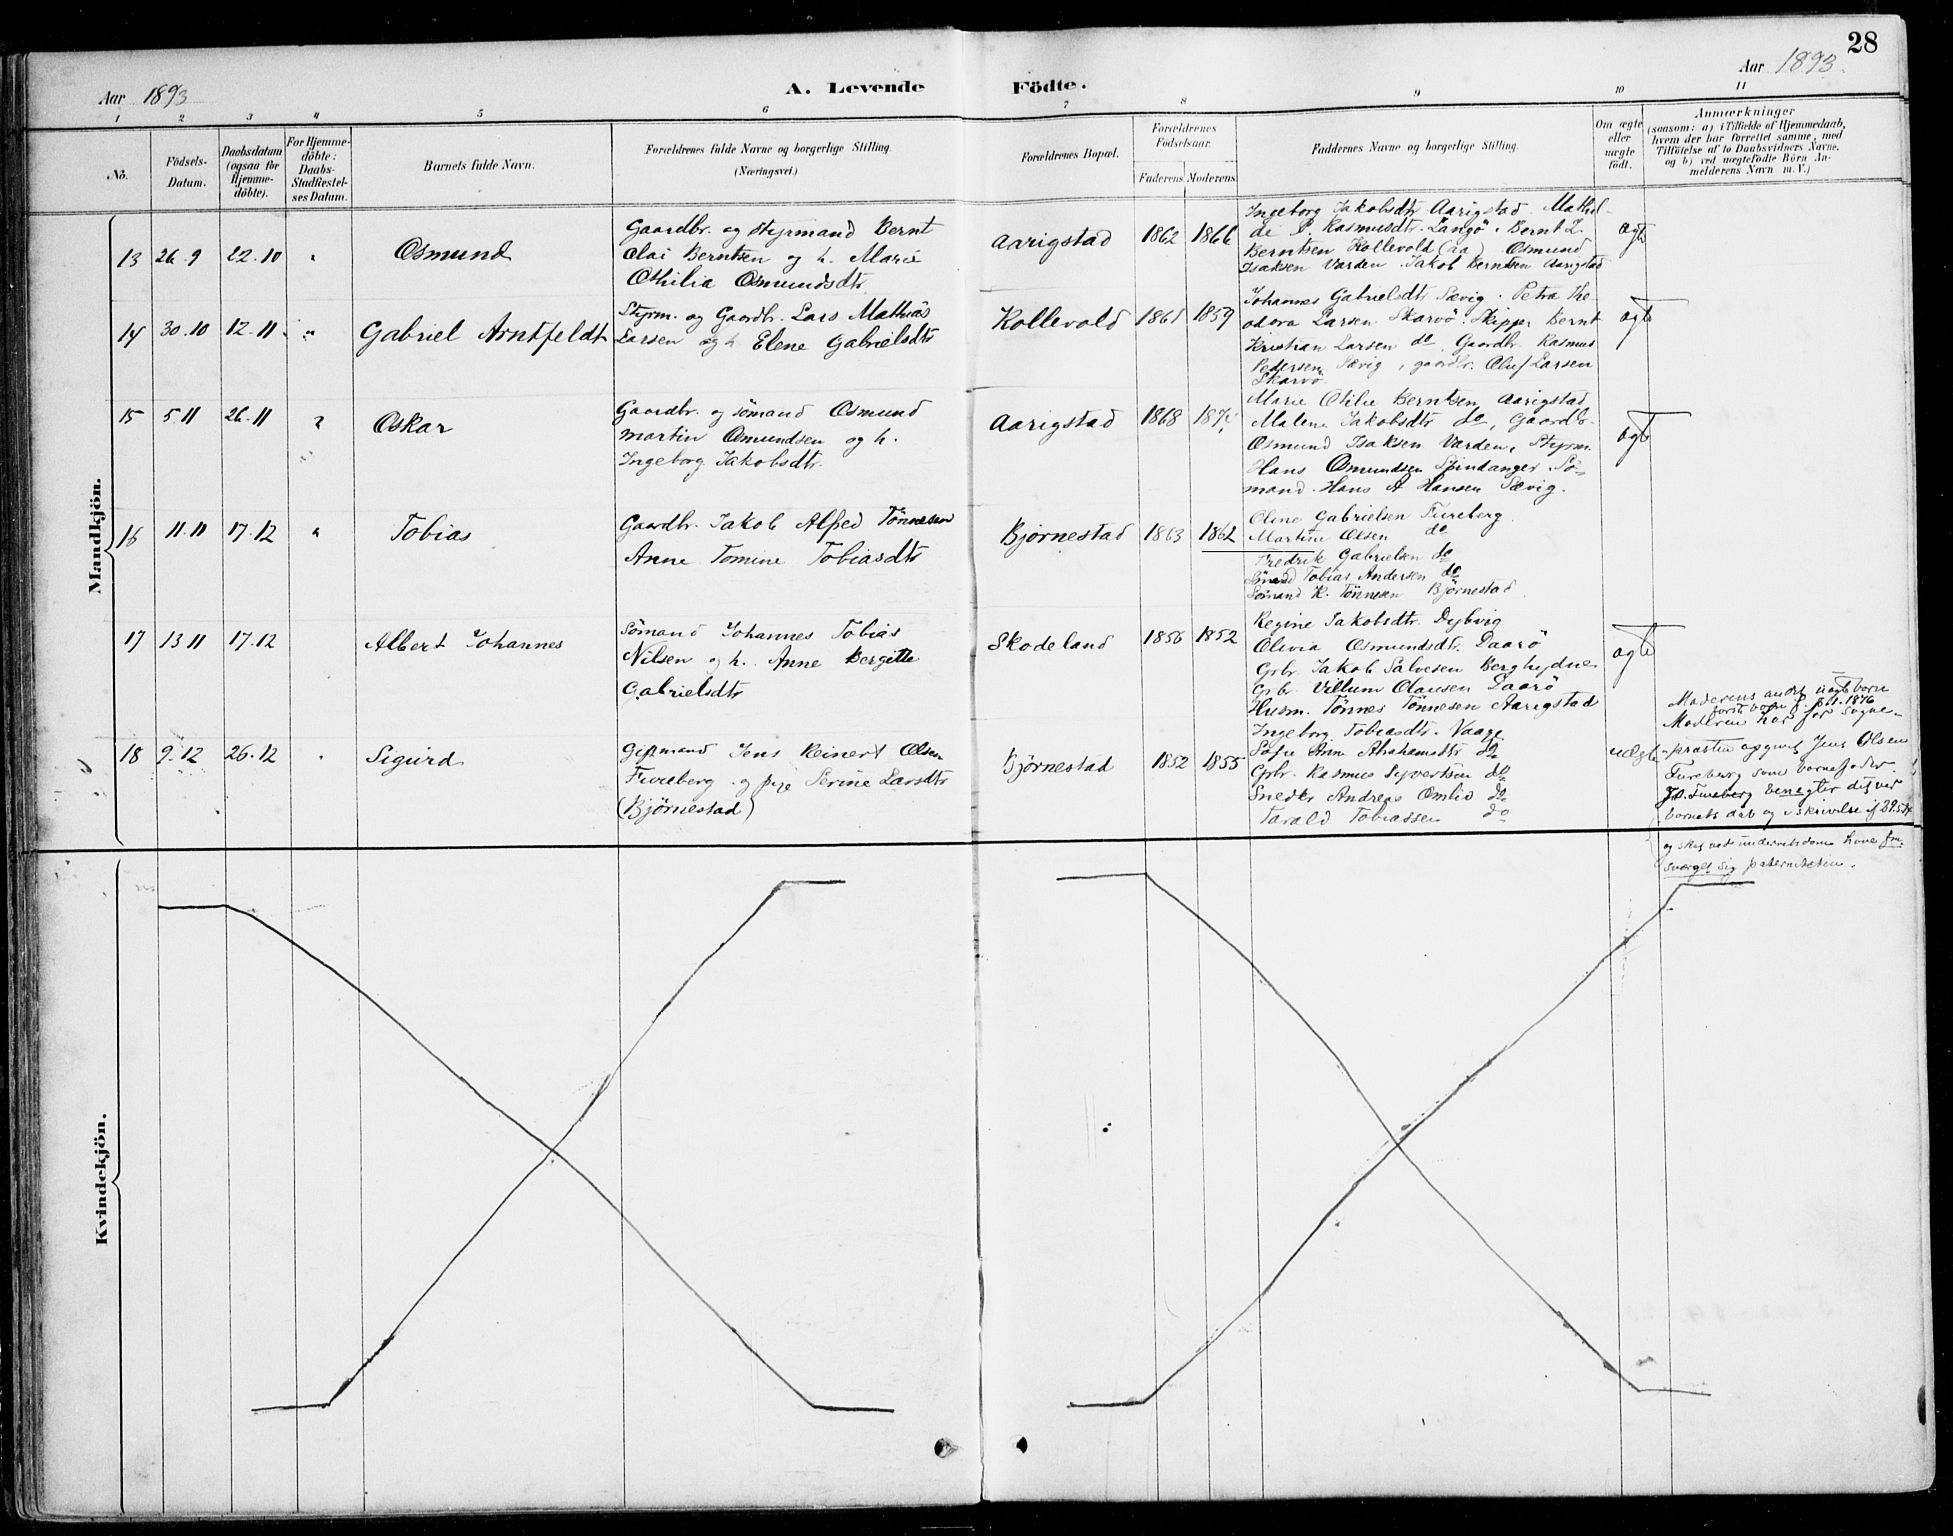 28
Aar 1893
A. Levende Födte.
Aar 1893.
1 2 3 4 5 6 7 8 9 10 11
No.
Födsels-
Datum.
Daabsdatum
(ogsaa for
Hjemme-
döbte).
For Hjemme-
döbte:
Daabs-
Stadfæstel-
ses Datum.
Barnets fulde Navn.
Forældrenes fulde Navne og borgerlige Stilling.
(Næringsvei.)
Forældrenes Bopæl.
Forældrenes
Födselsaar.
Faderens. Moderens.
Faddernes Navne og borgerlige Stilling.
Om ægte
eller
uægte
födt.
Anmærkninger
(saasom: a) i Tilfælde af Hjemmedaab,
hvem der har forrettet samme, med
Tilföielse af to Daabsvidners Navne,
og b) ved uægtefödte Börn An-
melderens Navn m. V.)
Mandkjön.
13 26.9 22.10 " Osmund
Gaardbr. og styrmand Bernt
Olai Berntsen og h. Marie
Othilia Osmundsdtr
Aarigstad 1862 1866
Ingeborg Jakobsdtr Aarigstad. Mathil-
de P. Rasmusdtr. Langö. Bernt L.
Berntsen Kollevold (aa) Osmund
Isaksen Varden. Jakob Berntsen Aarigstad
ægte
14 30.10 12.11 " Gabriel Arntfeldt
Styrm. og Gaardbr. Lars Mathias
Larsen og h Elene Gabrielsdtr
Kollevold 1861 1859
Johannes Gabrielsdtr Sævig. Petra The-
odora Larsen Skarvö. Skipper Bernt
Kristian Larsen do. Gaardbr. Rasmus
Pedersen Sævig, gaardbr. Oluf Larsen
Skarvö.
ægte
15 5.11 26.11 " Oskar
Gaardbr. og sömand Osmund
Martin Osmundsen og h.
Ingeborg Jakobsdtr.
Aarigstad 1868
Marie Otilie Berntsen Aarigstad
Malene Jakobsdtr do, Gaardb-
Osmund Isaksen Varden, Styrm.
Hans Osmundsen Spindanger. Sö-
mand. Hans A Hansen Sævig.
ægte
16 11.11 17.12 " Tobias
Gaardbr. Jakob Alfred Tönnesen
Anne Tomine Tobiasdtr
Bjørnestad 1863 1862
Oline Gabrielsen Fureberg.
Martine Olsen do
Fredrik Gabrielsen do
Sömand Tobias Andersen do
Sömand K. Tönnesen Björnestad.
17 13.11 17.12 Albert Johannes
Sömand Johannes Tobias
Nilsen og h. Anne Bergitte
Gabrielsdtr
Skodeland 1856 1852
Regine Jakobsdtr. Dybvig
Olivia Osmundsdtr. Daarö
Grbr. Jakob Salvesen Berghydne
Grbr. Villum Olausen Daarö
Husm. Tönnes Tönnesen Aarigstad
ægte
18 9.12 26.12 " Sigurd
Giftmand Jens Reinert Olsen
Fureberg og pige Serine Larsdtr
(Björnestad)
Björnestad 1852 1855
Ingeborg Tobiasdtr. Vaage
Sofie Ann Abrahamsdtr do
Grbr. Rasmus Syvertsen do
Snedkr Andreas Omlid do
Tarald Tobiassen do
uægte
Moderens andet uægte barn
første barn f. 1876
Moderen har for sogne-
præsten opgivet Jens Olsen
Fureberg som barnefader.
J.O. Fureberg benegter det ved
barnets dåb og i skrivelse af
og skal ved underretsdom have fra-
sværget sig paterniteten.
Kvindekjön.